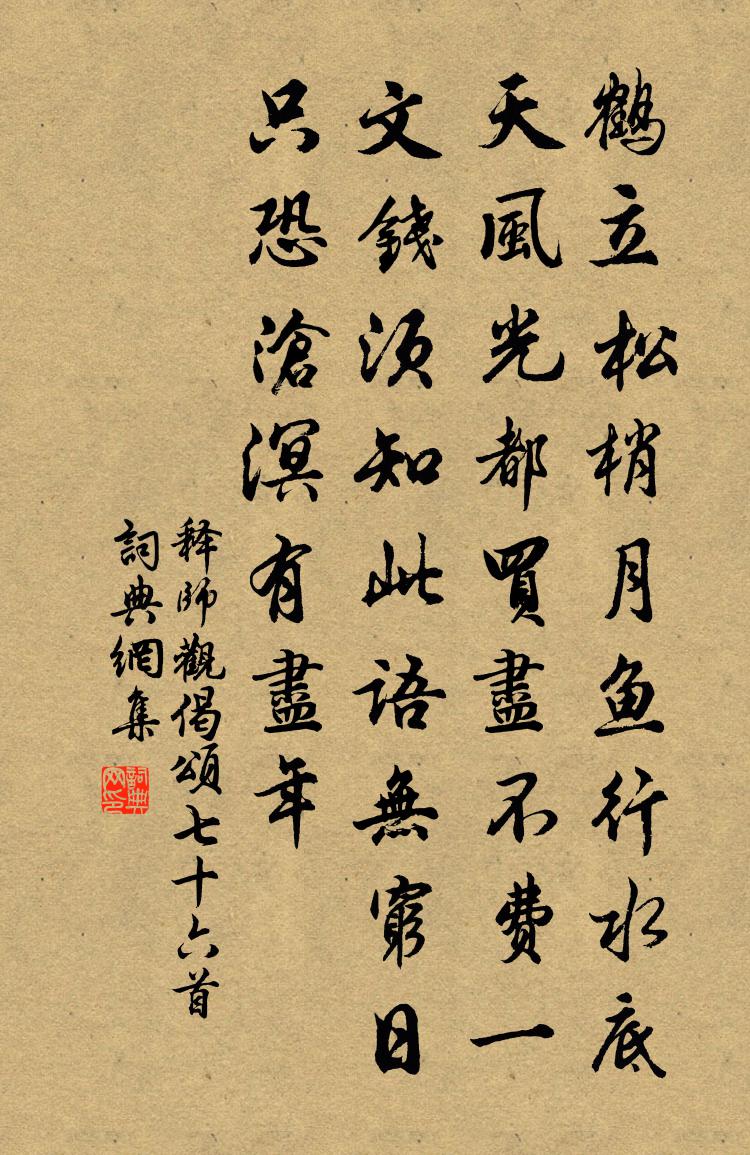 鶴立松梢月鱼行水底
天風光都買盡不費一
文錢須知此語無窮日
只恐滄溟有盡年
释師觀偈頌七十六首
詞典網集
詞典网印